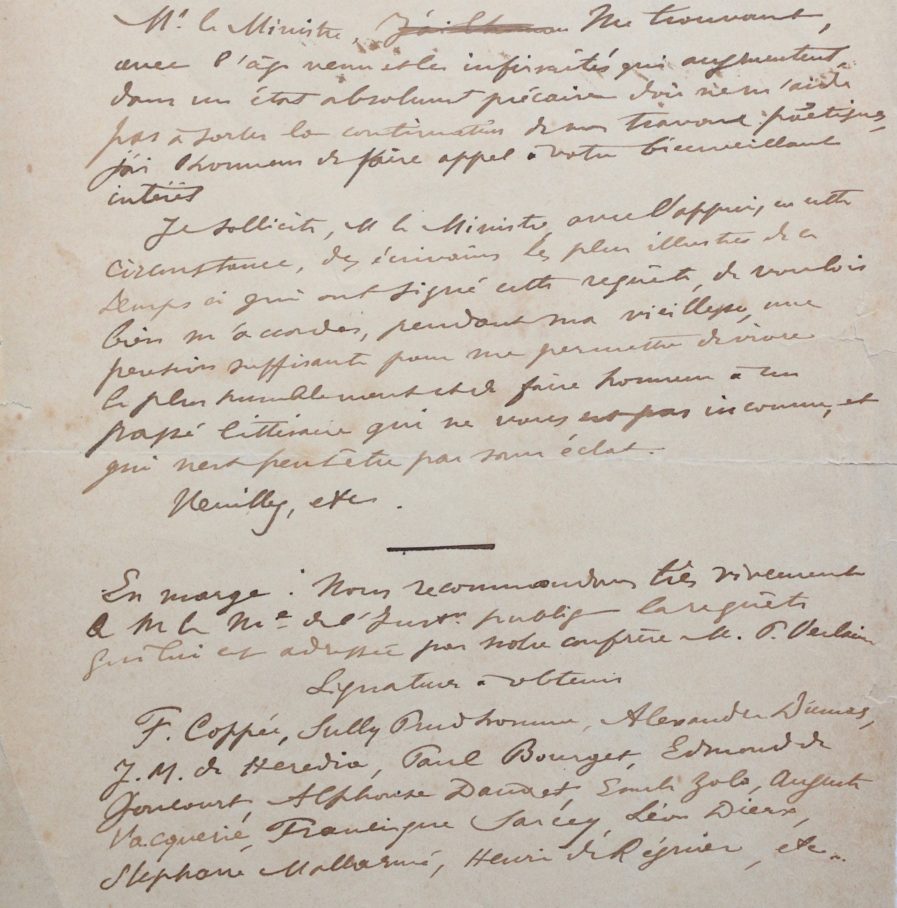 Mr le Ministre, Me trouvant,
avec l'âge venu et les infirmités qui augmentent
dans un état absolument précaire d'où ne m'aide
pas à sortir la continuation de mes travaux poétiques,
j'ai l'honneur de faire appel à votre bienveillant
intérêt
Je sollicite, M le Ministre, avec l'appui, en cette
circonstance, des écrivains les plus illustres de ce
temps ci qui ont signé cette requête, de vouloir
bien m'accorder, pendant ma vieillesse, une
pension suffisante pour me permettre de vivre
le plus humblement et de faire honneur à un
passé littéraire qui ne vous est pas inconnu, et
qui n'est peut être pas sans éclat.
Neuilly, etc.
En marge : Nous recommandons très vivement
à M le Me de l'Inston publiq la requête
qui lui est adressée par notre confrère M. P. Verlaine
Signatures à obtenir
F. Coppée, Sully Prudhomme, Alexandre Dumas,
J. M. de Heredia, Paul Bourget, Edmond de
Goncourt, Alphonse Daudet, Emile Zola, Auguste
Vacquerie, Francisque Sarcey, Léon Dierx,
Stéphane Mallarmé, Henri de Régnier, etc..